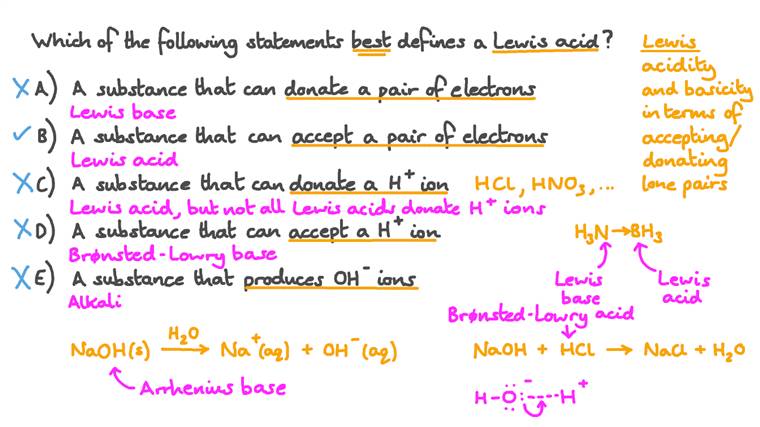 Which of the following statements best defines a Lewis acid?
A) A substance that can donate a pair of electrons
Lewis base
B) A substance that can accept a pair of electrons
Lewis acid
C) A substance that can donate a H⁺ ion HCl, HNO₃, ...
Lewis acid, but not all Lewis acids donate H⁺ ions
D) A substance that can accept a H⁺ ion
Brønsted-Lowry base
E) A substance that produces OH⁻ ions
Alkali
NaOH(s) H₂O→ Na⁺(aq) + OH⁻(aq)
Arrhenius base
Lewis
acidity
and basicity
in terms of
accepting/
donating
lone pairs
H₃N→BH₃
Lewis base
Lewis acid
Brønsted-Lowry acid
NaOH + HCl → NaCl + H₂O
H-O⁻----H⁺